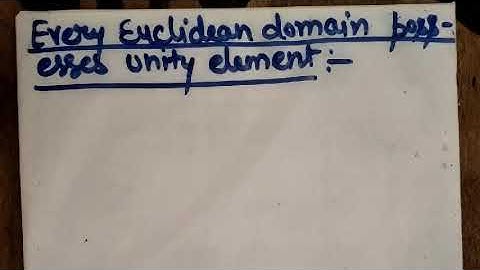 Every Euclidean domain poss-
esses unity element :-